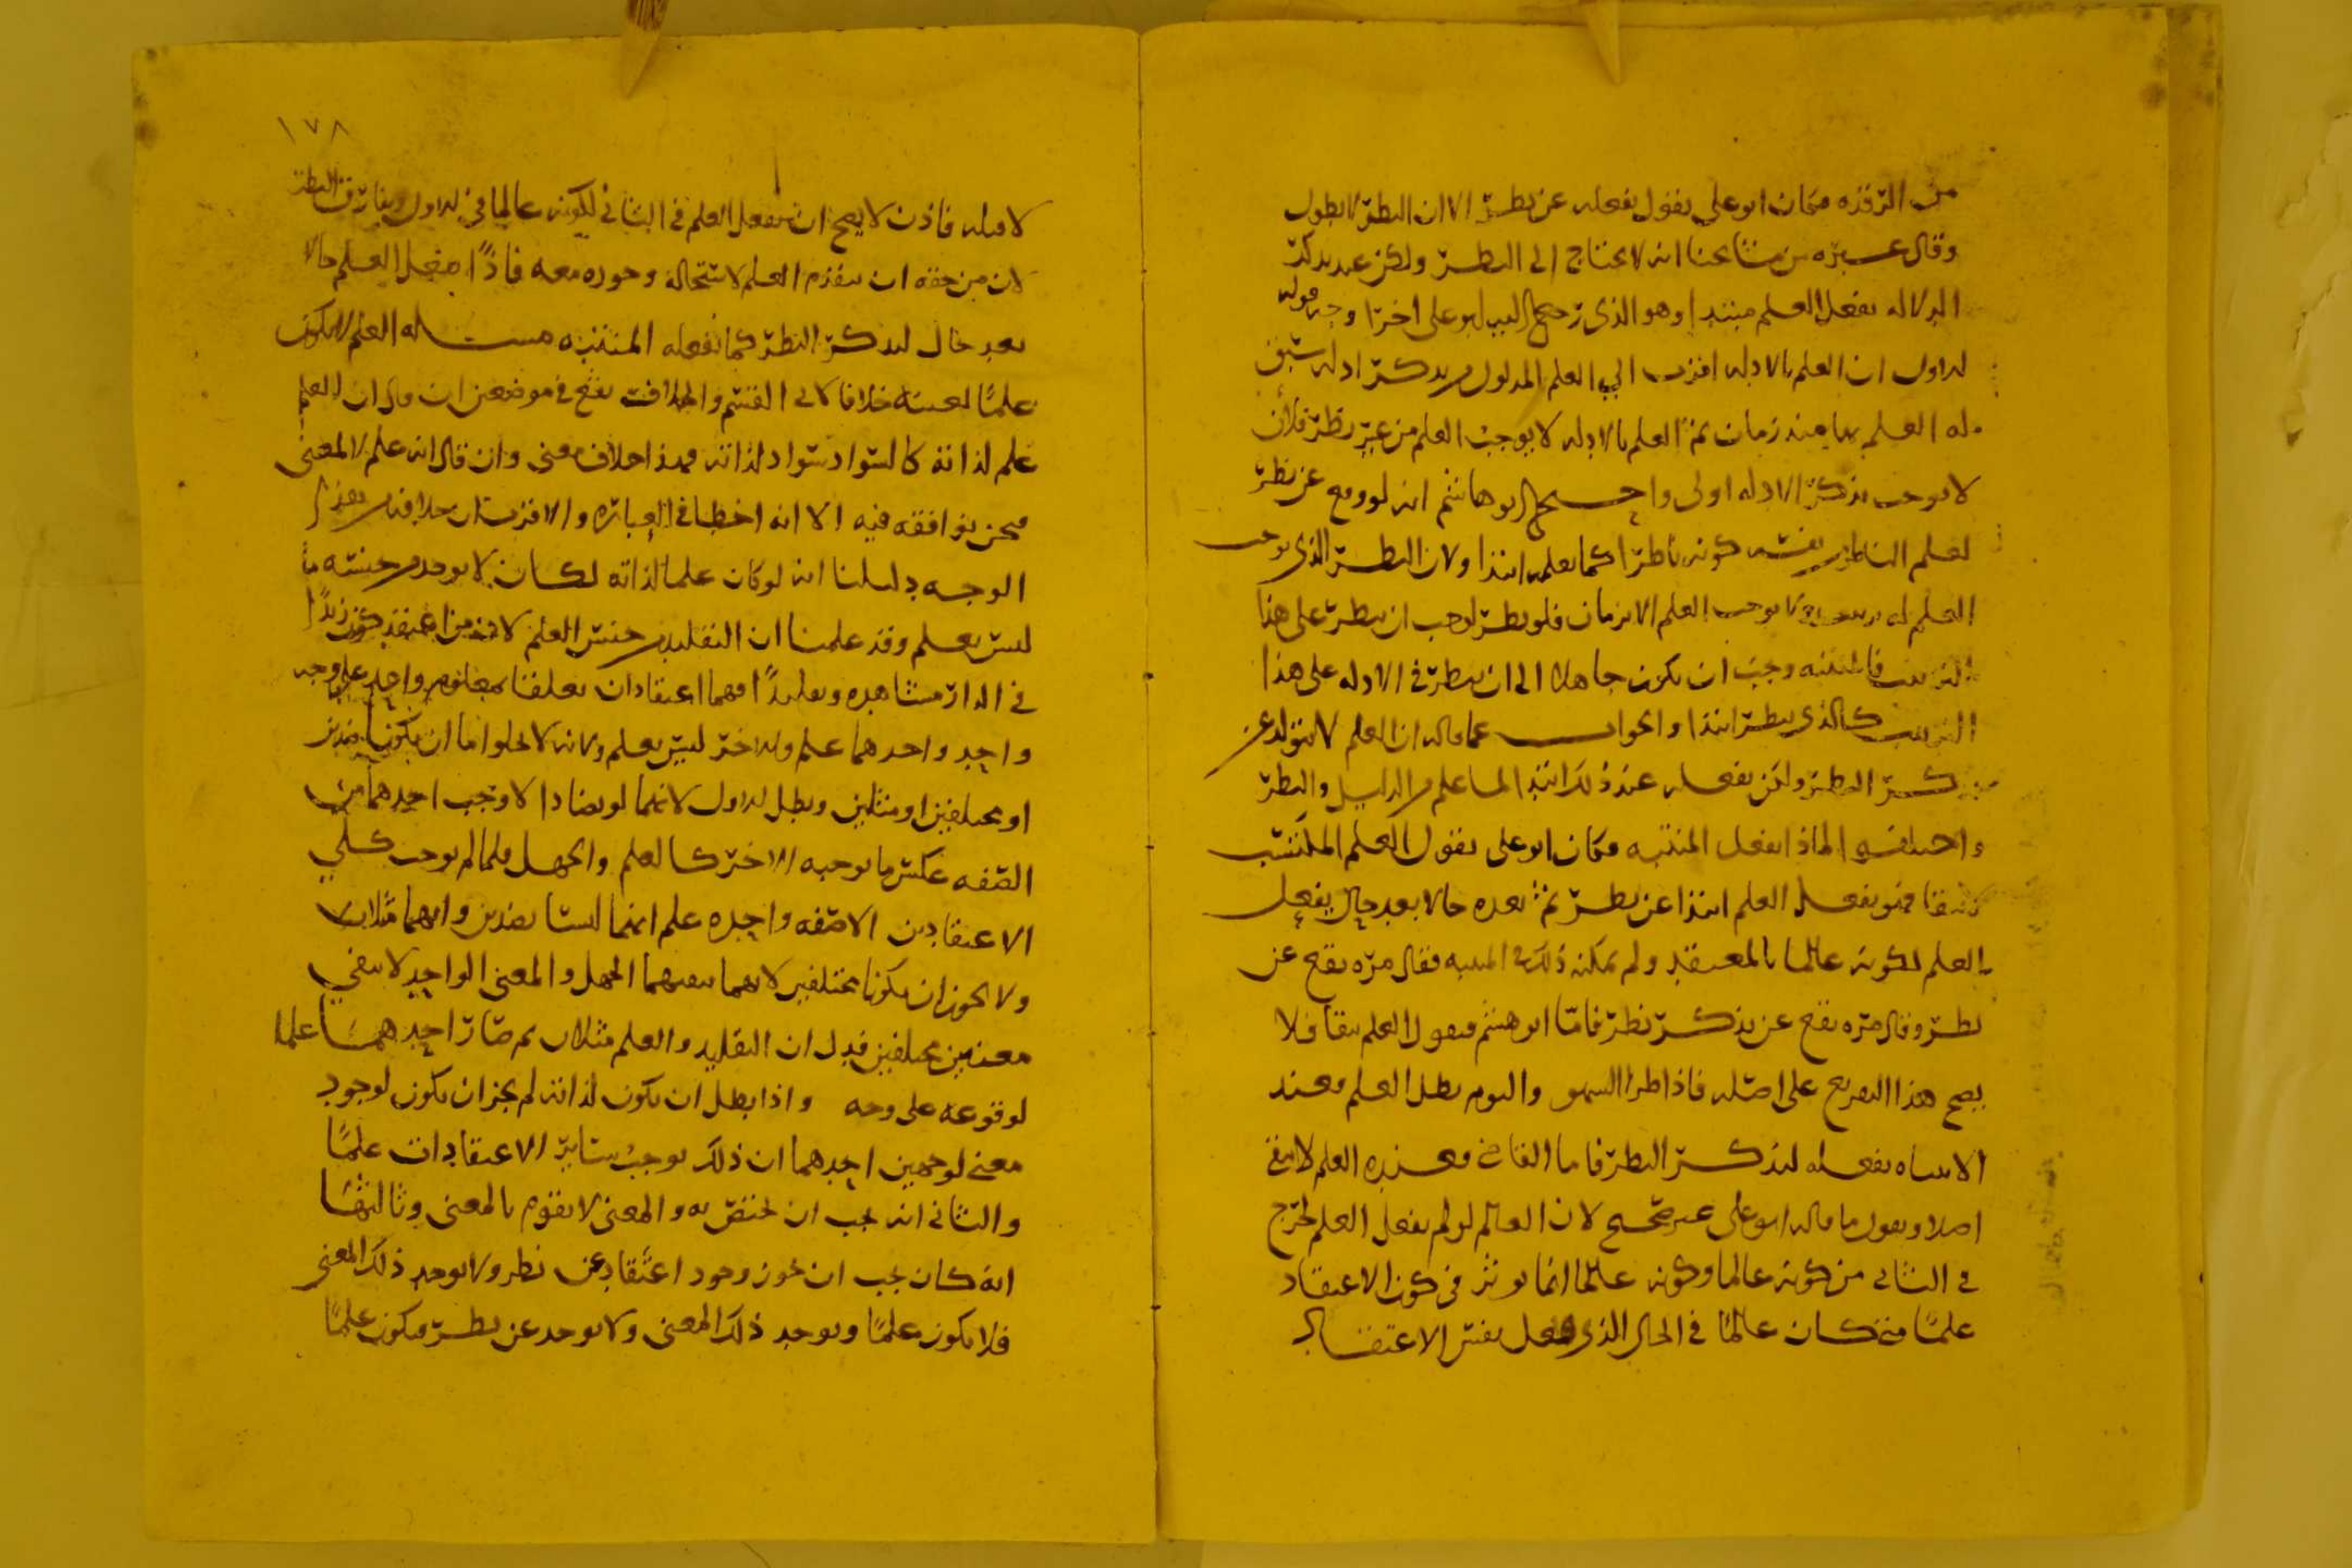 من الرقده فكان ابو علي يقول يفعله عن نظر الا ان النظر لا يطول
وقال غيره من مشايخنا انه لا يحتاج الى النظر ولكن عند تذكر
الدلاله يفعل العلم مبتدا وهو الذي رجح اليه ابو علي اخرا وجه قوله
الاول ان العلم بالادله اقرب الى العلم المدلول من تذكر ادله سبق
له العلم بها منذ زمان ثم العلم بالادله لا يوجب العلم من غير نظر فلأن
لا يوجب تذكر الادله اولى واحتج ابو هاشم انه لو وقع عن نظر
لعلم الناظر من نفسه كونه ناظرا كما يعلمه ابتدا ولان النظر الذي يوجب
العلم له لا يوجب العلم الا بزمان فلو نظر لوجب ان ينظر على هذا
الترتيب فالمنتبه وجب ان يكون جاهلا الى ان ينظر في الادله على هذا
الترتيب كالذي ينظر ابتدا والجواب عما قاله ان العلم لا يتولد عن
تذكر النظر ولكن يفعله عند ذلك ابتدا لما علم من الدليل والنظر
واختلفوا لماذا يفعل المنتبه فكان ابو علي يقول العلم المكتسب
لا يبقا فهو يفعل العلم ابتدا عن نظر ثم بعده حالا بعد حال يفعل
العلم لكونه عالما بالمعتقد ولم يمكنه ذلك في المنتبه فقال مره يقع عن
نظر وقال مره يقع عن تذكر نظر فاما ابو هشم فيقول العلم يبقا فلا
يصح هذا التفريع على اصله فاذا طرا السهو والنوم بطل العلم فعند
الانتباه يفعله لتذكر النظر فاما القاضي فعنده العلم لا يبقى
اصلا ويقول ما قاله ابو علي غير صحيح لان العالم لو لم يفعل العلم لخرج
في الثاني من كونه عالما وكونه عالما انما يوثر في كون الاعتقاد
علما متى كان عالما في الحال الذي يفعل نفس الاعتقاد
١٧٨
لا قبله فاذن لا يصح ان يفعل العلم في الثاني لكونه عالما في الاول ويفارق النظر
لان من حقه ان يتقدم العلم لاستحالة وجوده معه فاذًا يفعل العلم حالا
بعد حال لتذكر النظر كما يفعله المنتبه مسله العلم لا يكون
علمًا لعينه خلافا لابي القسم والخلاف يقع في موضعين ان قال ان العلم
علم لذاته كالسواد سواد لذاته فهذا خلاف معنى وان قال انه علم لا لمعنى
فنحن نوافقه فيه الا انه اخطا في العباره والاقرب ان خلافه بهذا
الوجه دليلنا انه لو كان علما لذاته لكان لا يوجد من جنسه ما
ليس بعلم وقد علمنا ان التقليد من جنس العلم لان من اعتقد كون زيدًا
في الدار مشاهده وتقليدًا فهما اعتقادان تعلقا بمعلوم واحد على وجه
واحد واحدهما علم والاخر ليس بعلم ولانه لا يخلوا اما ان يكونا ضدين
او مختلفين او مثلين وبطل الاول لانهما لو تضادا لاوجب احدهما من
الصفه عكس ما يوجبه الاخر كالعلم والجهل فلما لم يوجب كلي
الاعتقادين الا صفه واحده علم انهما ليستا بضدين وانهما مثلان
ولا يجوز ان يكونا مختلفين لانهما ينفيهما الجهل والمعنى الواحد لا ينفي
معنيين مختلفين فدل ان التقليد والعلم مثلان ثم صار احدهما علما
لوقوعه على وجه واذا بطل ان يكون لذاته لم يجز ان يكون لوجود
معنى لوجهين احدهما ان ذلك يوجب سائر الاعتقادات علمًا
والثاني انه يجب ان يختص به والمعنى لا يقوم بالمعنى وثالثها
انه كان يجب ان يجوز وجود اعتقاد عن نظر ولا يوجد ذلك المعنى
فلا يكون علمًا ويوجد ذلك المعنى ولا يوجد عن نظر فيكون علمًا